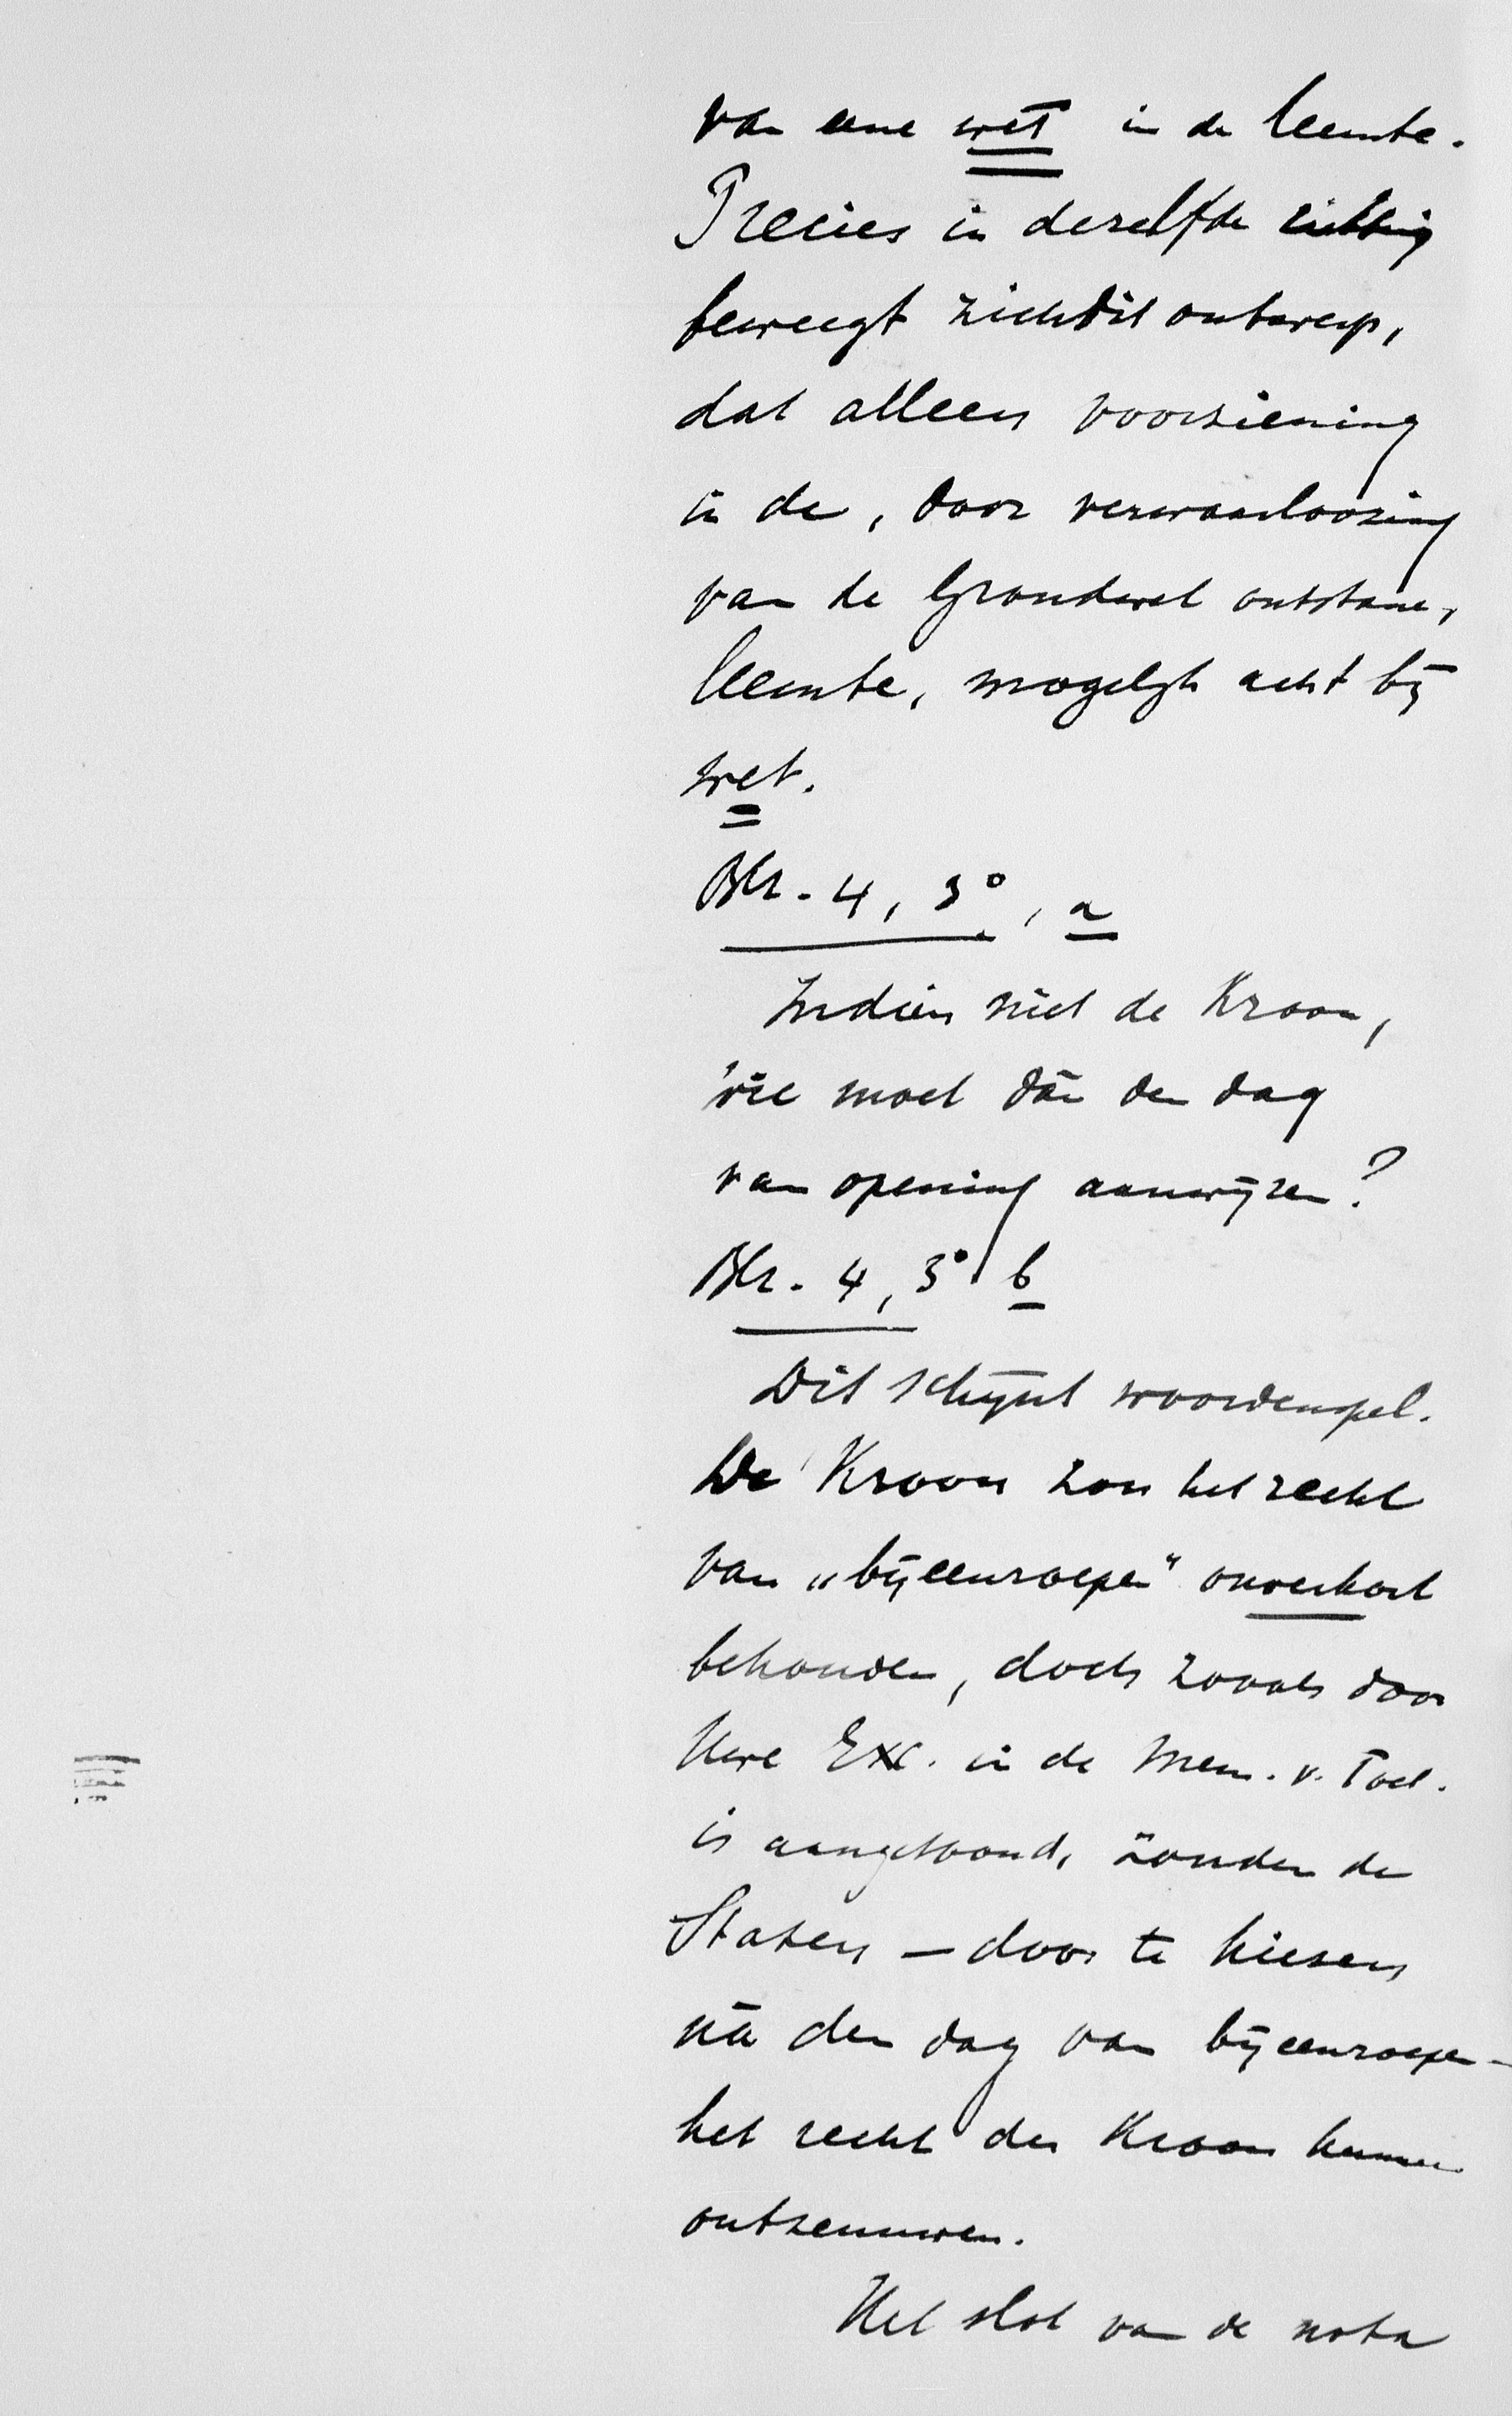 van eene wet in de leemte.
Precies in dezelfde richting
beweegt zich dit ontwerp,
dat alleen voorziening
in de, door verwaarloozing
van de Grondwet ontstane,
leemte, mogelijk acht bij
wet.
Blz. 4, 3°, a
Indien niet de Kroon,
wie moet dàn den dag
van opening aanwijzen?
Blz. 4, 3° b
Dit schijnt woordenspel.
De Kroon zou het recht
van „bijeenroepen" onverkort
behouden, doch zooals door
Uwe Exc. in de Mem. v. Toel.
is aangetoond, zouden de
Staten — door te kiezen
nà den dag van bijeenroepen —
het recht der Kroon kunnen
ontzenuwen.
Het slot van de nota